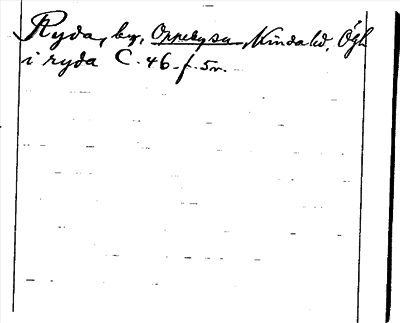 Ryda, by, Oppeby sn, Kinda hd, Ögl
i ryda C. 46 f. 5r.